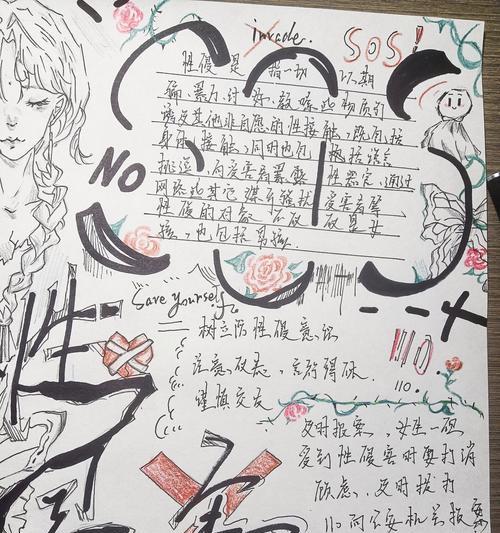 invade.
SOS!
性侵是 指一切以期
骗、暴力、讨好、教唆或物质引
诱及其他非自愿的性接触,既包括
身体接触,同时也包 括言语
挑逗、向受害者暴露 性器官、通过
网络或其它媒介骚扰 受害者等
性侵的对象 不仅 仅是女
孩,也包括男孩。
NO
Save yourself
树立防性侵意识
注意仪态,言行得体.
谨慎交友
NO
110.
及时报案,女生一旦
受到性侵害时要打消
顾虑,及时拨打
110向公安机关报案
性